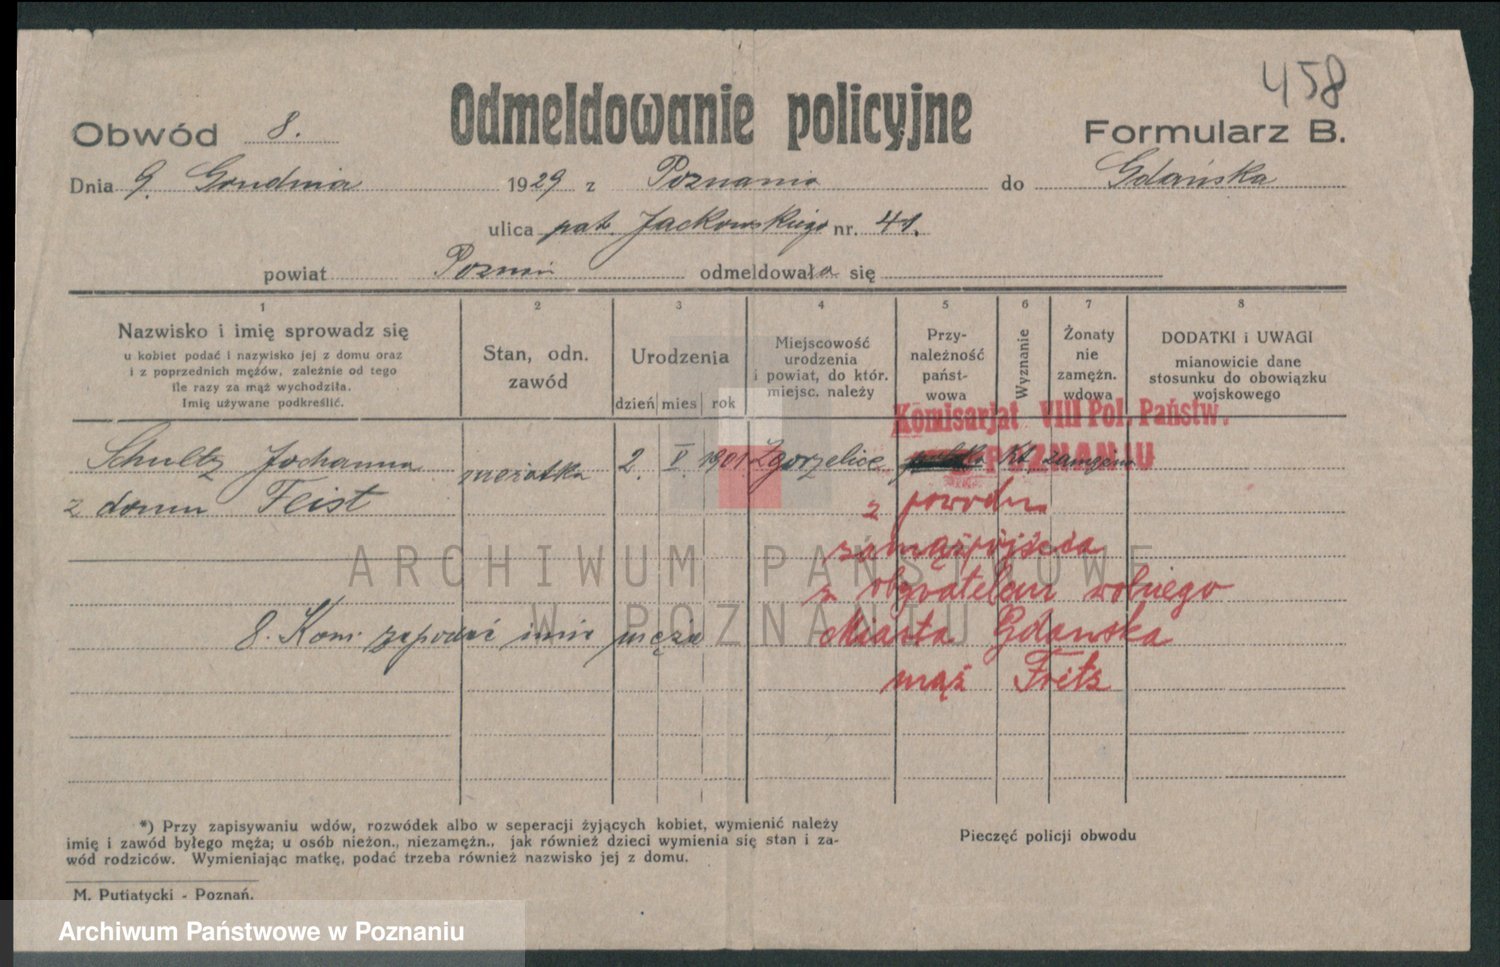 458
Odmeldowanie policyjne
Obwód 8.
Formularz B.
Dnia 9. Grudnia 1929 z Poznania do Gdańska
ulica pat. Jackowskiego nr. 41.
powiat Poznań odmeldowała się
1 2 3 4 5 6 7 8
Nazwisko i imię sprowadz się
u kobiet podać i nazwisko jej z domu oraz
i z poprzednich mężów, zależnie od tego
ile razy za mąż wychodziła.
Imię używane podkreślić.
Stan, odn.
zawód
Urodzenia
dzień mies rok
Miejscowość
urodzenia
i powiat, do któr.
miejsc. należy
Przy-
należność
państ-
wowa
Wyznanie
Żonaty
nie
zamężn.
wdowa
DODATKI i UWAGI
mianowicie dane
stosunku do obowiązku
wojskowego
Komisarjat VIII Pol. Państw.
POZNANIU
Schultz Johanna mężatka 2. V. 1901. Zgorzelice Kt.
z domu Feist
z powodu
zamążpójścia
z obywatelem wolnego
Miasta Gdańska
mąż Fritz
8. Kom. zapodać imię męża
ARCHIWUM PAŃSTWOWE
W POZNANIU
*) Przy zapisywaniu wdów, rozwódek albo w seperacji żyjących kobiet, wymienić należy
imię i zawód byłego męża; u osób nieżon., niezamężn., jak również dzieci wymienia się stan i za-
wód rodziców. Wymieniając matkę, podać trzeba również nazwisko jej z domu.
Pieczęć policji obwodu
M. Putiatycki - Poznań.
Archiwum Państwowe w Poznaniu